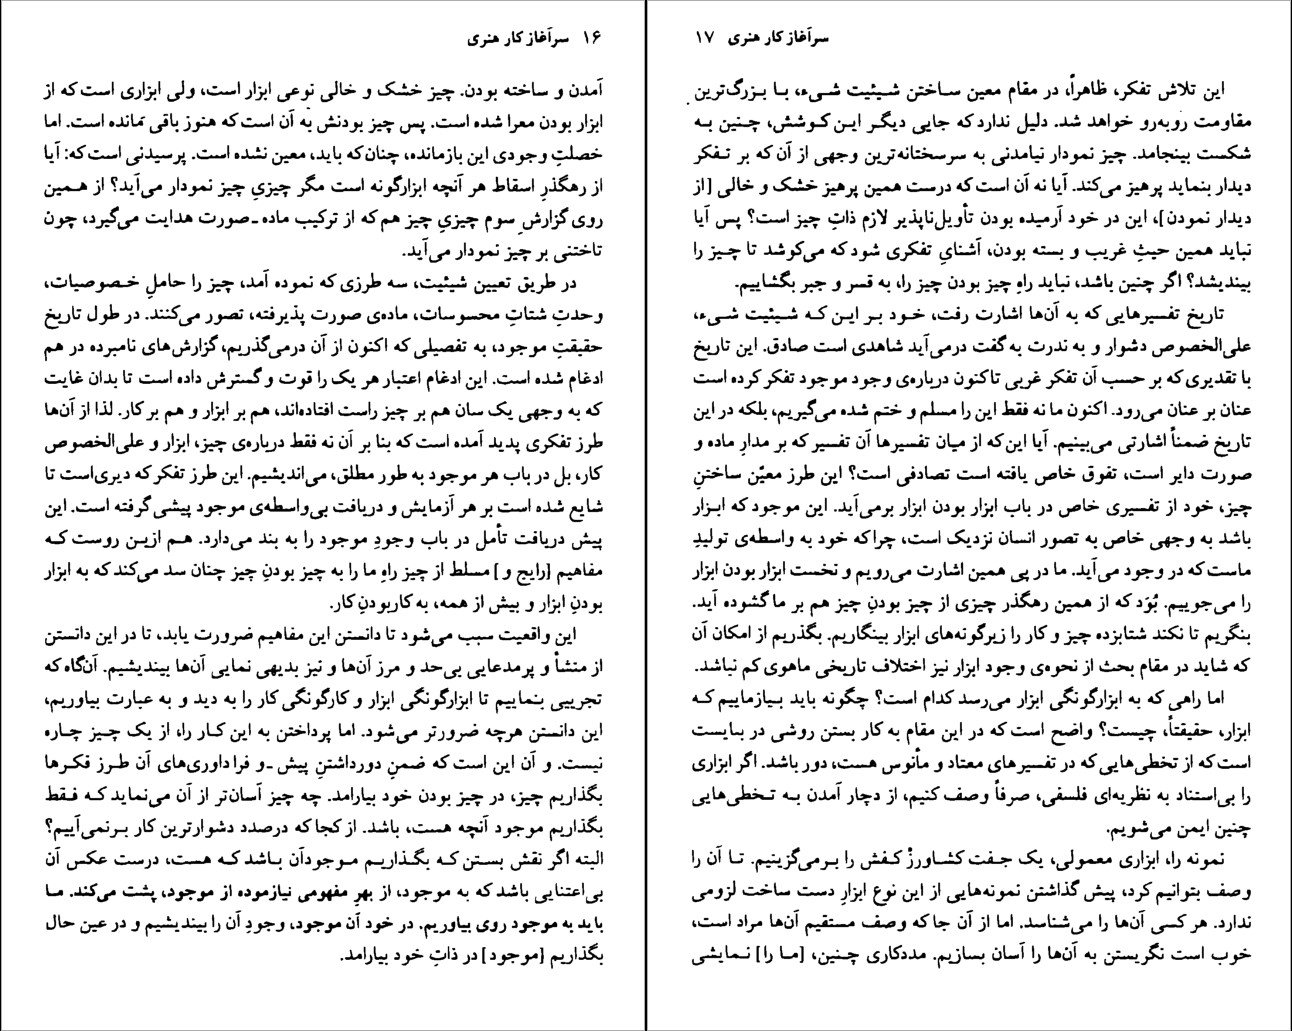 ۱۶ سرآغاز کار هنری
آمدن و ساخته بودن. چیز خشک و خالی نوعی ابزار است، ولی ابزاری است که از
ابزار بودن معرا شده است. پس چیز بودنش به آن است که هنوز باقی نمانده است. اما
خصلتِ وجودی این بازمانده، چنان‌که باید، معین نشده است. پرسیدنی است که: آیا
از رهگذرِ اسقاط هر آنچه ابزارگونه است مگر چیزیِ چیز نمودار می‌آید؟ از همین
روی گزارشِ سوم چیزیِ چیز هم که از ترکیب ماده ـ صورت هدایت می‌گیرد، چون
تاختنی بر چیز نمودار می‌آید.
در طریق تعیین شیئیت، سه طرزی که نموده آمد، چیز را حاملِ خصوصیات،
وحدتِ شتاتِ محسوسات، ماده‌ی صورت پذیرفته، تصور می‌کنند. در طول تاریخ
حقیقتِ موجود، به تفصیلی که اکنون از آن درمی‌گذریم، گزارش‌های نامبرده در هم
ادغام شده است. این ادغام اعتبار هر یک را قوت و گسترش داده است تا بدان غایت
که به وجهی یک سان هم بر چیز راست افتاده‌اند، هم بر ابزار و هم بر کار. لذا از آن‌ها
طرز تفکری پدید آمده است که بنا بر آن نه فقط درباره‌ی چیز، ابزار و علی‌الخصوص
کار، بل در باب هر موجود به طور مطلق، می‌اندیشیم. این طرز تفکر که دیری است تا
شایع شده است بر هر آزمایش و دریافت بی‌واسطه‌ی موجود پیشی گرفته است. این
پیش دریافت تأمل در باب وجودِ موجود را به بند می‌دارد. هم ازین روست که
مفاهیم [رایج و] مسلط از چیز راهِ ما را به چیز بودنِ چیز چنان سد می‌کند که به ابزار
بودنِ ابزار و بیش از همه، به کاربودنِ کار.
این واقعیت سبب می‌شود تا دانستن این مفاهیم ضرورت یابد، تا در این دانستن
از منشأ و پرمدعایی بی‌حد و مرز آن‌ها و نیز بدیهی نمایی آن‌ها بیندیشیم. آن‌گاه که
تجربی بنماییم تا ابزارگونگی ابزار و کارگونگی کار را به دید و به عبارت بیاوریم،
این دانستن هرچه ضرورتر می‌شود. اما پرداختن به این کار را، از یک چیز چاره
نیست. و آن این است که ضمنِ دورداشتنِ پیش ـ و فراداوری‌های آن طرز فکرها
بگذاریم چیز، در چیز بودن خود بیارامد. چه چیز آسان‌تر از آن می‌نماید که فقط
بگذاریم موجود آنچه هست، باشد. از کجا که درصدد دشوارترین کار برنمی‌آییم؟
البته اگر نقش بستن که بگذاریم موجودآن باشد که هست، درست عکس آن
بی‌اعتنایی باشد که به موجود، از بهرِ مفهومی نیازموده از موجود، پشت می‌کند. ما
باید به موجود روی بیاوریم. در خود آن موجود، وجودِ آن را بیندیشیم و در عین حال
بگذاریم [موجود] در ذاتِ خود بیارامد.
سرآغاز کار هنری ۱۷
این تلاش تفکر، ظاهراً، در مقام معین ساختن شیئیت شیء، با بزرگ‌ترین
مقاومت روبه‌رو خواهد شد. دلیل ندارد که جایی دیگر این کوشش، چنین به
شکست بینجامد. چیز نمودار نیامدنی به سرسختانه‌ترین وجهی از آن که بر تفکر
دیدار بنماید پرهیز می‌کند. آیا نه آن است که درست همین پرهیز خشک و خالی [از
دیدار نمودن]، این در خود آرمیده بودن تأویل‌ناپذیر لازم ذاتِ چیز است؟ پس آیا
نباید همین حیثِ غریب و بسته بودن، آشنایِ تفکری شود که می‌کوشد تا چیز را
بیندیشد؟ اگر چنین باشد، نباید راهِ چیز بودن چیز را، به قسر و جبر بگشاییم.
تاریخ تفسیرهایی که به آن‌ها اشارت رفت، خود بر این که شیئیت شیء،
علی‌الخصوص دشوار و به ندرت به گفت درمی‌آید شاهدی است صادق. این تاریخ
با تقدیری که بر حسب آن تفکر غربی تاکنون درباره‌ی وجود موجود تفکر کرده است
عنان بر عنان می‌رود. اکنون ما نه فقط این را مسلم و ختم شده می‌گیریم، بلکه در این
تاریخ ضمناً اشارتی می‌بینیم. آیا این‌که از میان تفسیرها آن تفسیر که بر مدارِ ماده و
صورت دایر است، تفوق خاص یافته است تصادفی است؟ این طرز معیّن ساختنِ
چیز، خود از تفسیری خاص در باب ابزار بودن ابزار برمی‌آید. این موجود که ابزار
باشد به وجهی خاص به تصور انسان نزدیک است، چراکه خود به واسطه‌ی تولیدِ
ماست که در وجود می‌آید. ما در پی همین اشارت می‌رویم و نخست ابزار بودن ابزار
را می‌جوییم. بُوَد که از همین رهگذر چیزی از چیز بودنِ چیز هم بر ما گشوده آید.
بنگریم تا نکند شتابزده چیز و کار را زیرگونه‌های ابزار بینگاریم. بگذریم از امکان آن
که شاید در مقام بحث از نحوه‌ی وجود ابزار نیز اختلاف تاریخی ماهوی کم نباشد.
اما راهی که به ابزارگونگی ابزار می‌رسد کدام است؟ چگونه باید بیازماییم که
ابزار، حقیقتاً، چیست؟ واضح است که در این مقام به کار بستن روشی در بایست
است که از تخطی‌هایی که در تفسیرهای معتاد و مأنوس هست، دور باشد. اگر ابزاری
را بی‌استناد به نظریه‌ای فلسفی، صرفاً وصف کنیم، از دچار آمدن به تخطی‌هایی
چنین ایمن می‌شویم.
نمونه را، ابزاری معمولی، یک جفت کشاورزْ کفش را برمی‌گزینیم. تا آن را
وصف بتوانیم کرد، پیش گذاشتن نمونه‌هایی از این نوع ابزارِ دست ساخت لزومی
ندارد. هر کسی آن‌ها را می‌شناسد. اما از آن جا که وصف مستقیم آن‌ها مراد است،
خوب است نگریستن به آن‌ها را آسان بسازیم. مددکاری چنین، [ما را] نمایشی